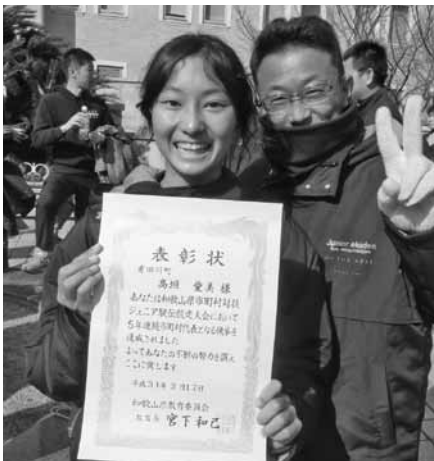 表彰状
有田川町
高垣 愛美 様
あなたは和歌山県市町村対抗
ジュニア駅伝競走大会において
5年連続市町村代表となる快挙を
達成されました
よってあなたの不断の努力を讃え
ここに賞します
平成31年2月17日
和歌山県教育委員会
教育長 宮下和己
Junior ekiden